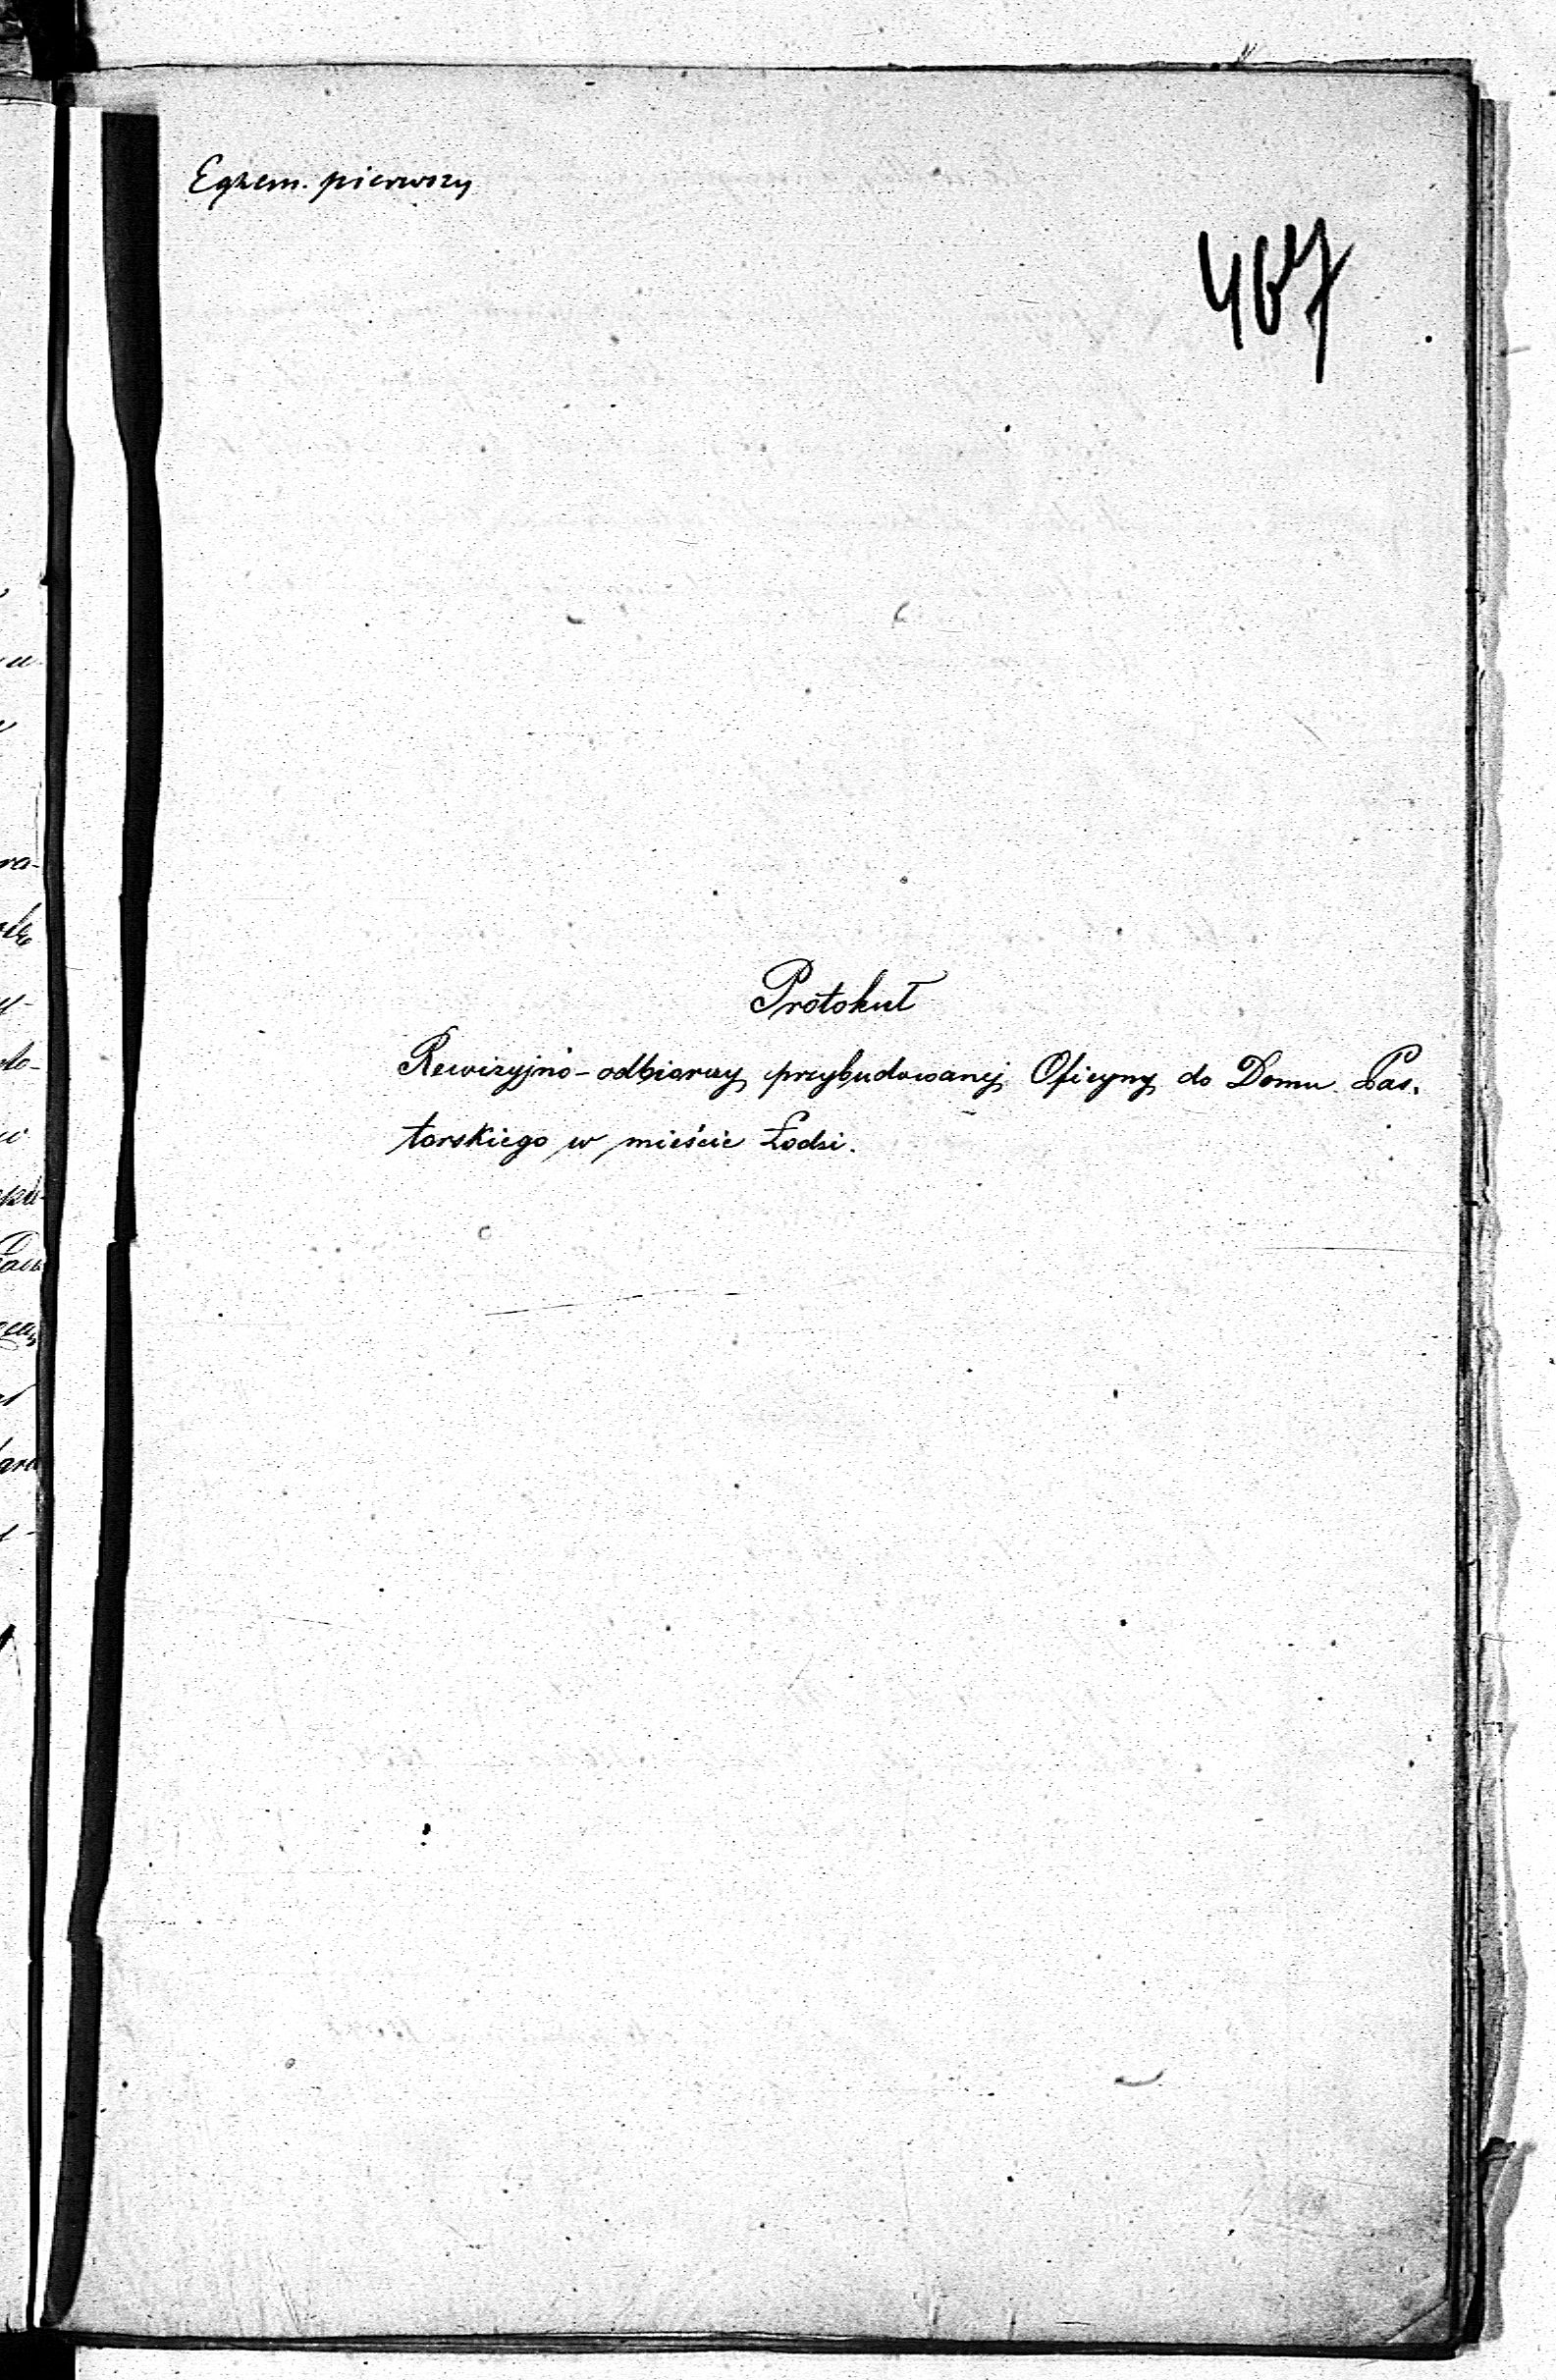 Egzem. pierwszy
467
Protokuł
Rewizyjno-odbiorczy przybudowanej Oficyny do Domu Pas-
torskiego w mieście Łodzi.